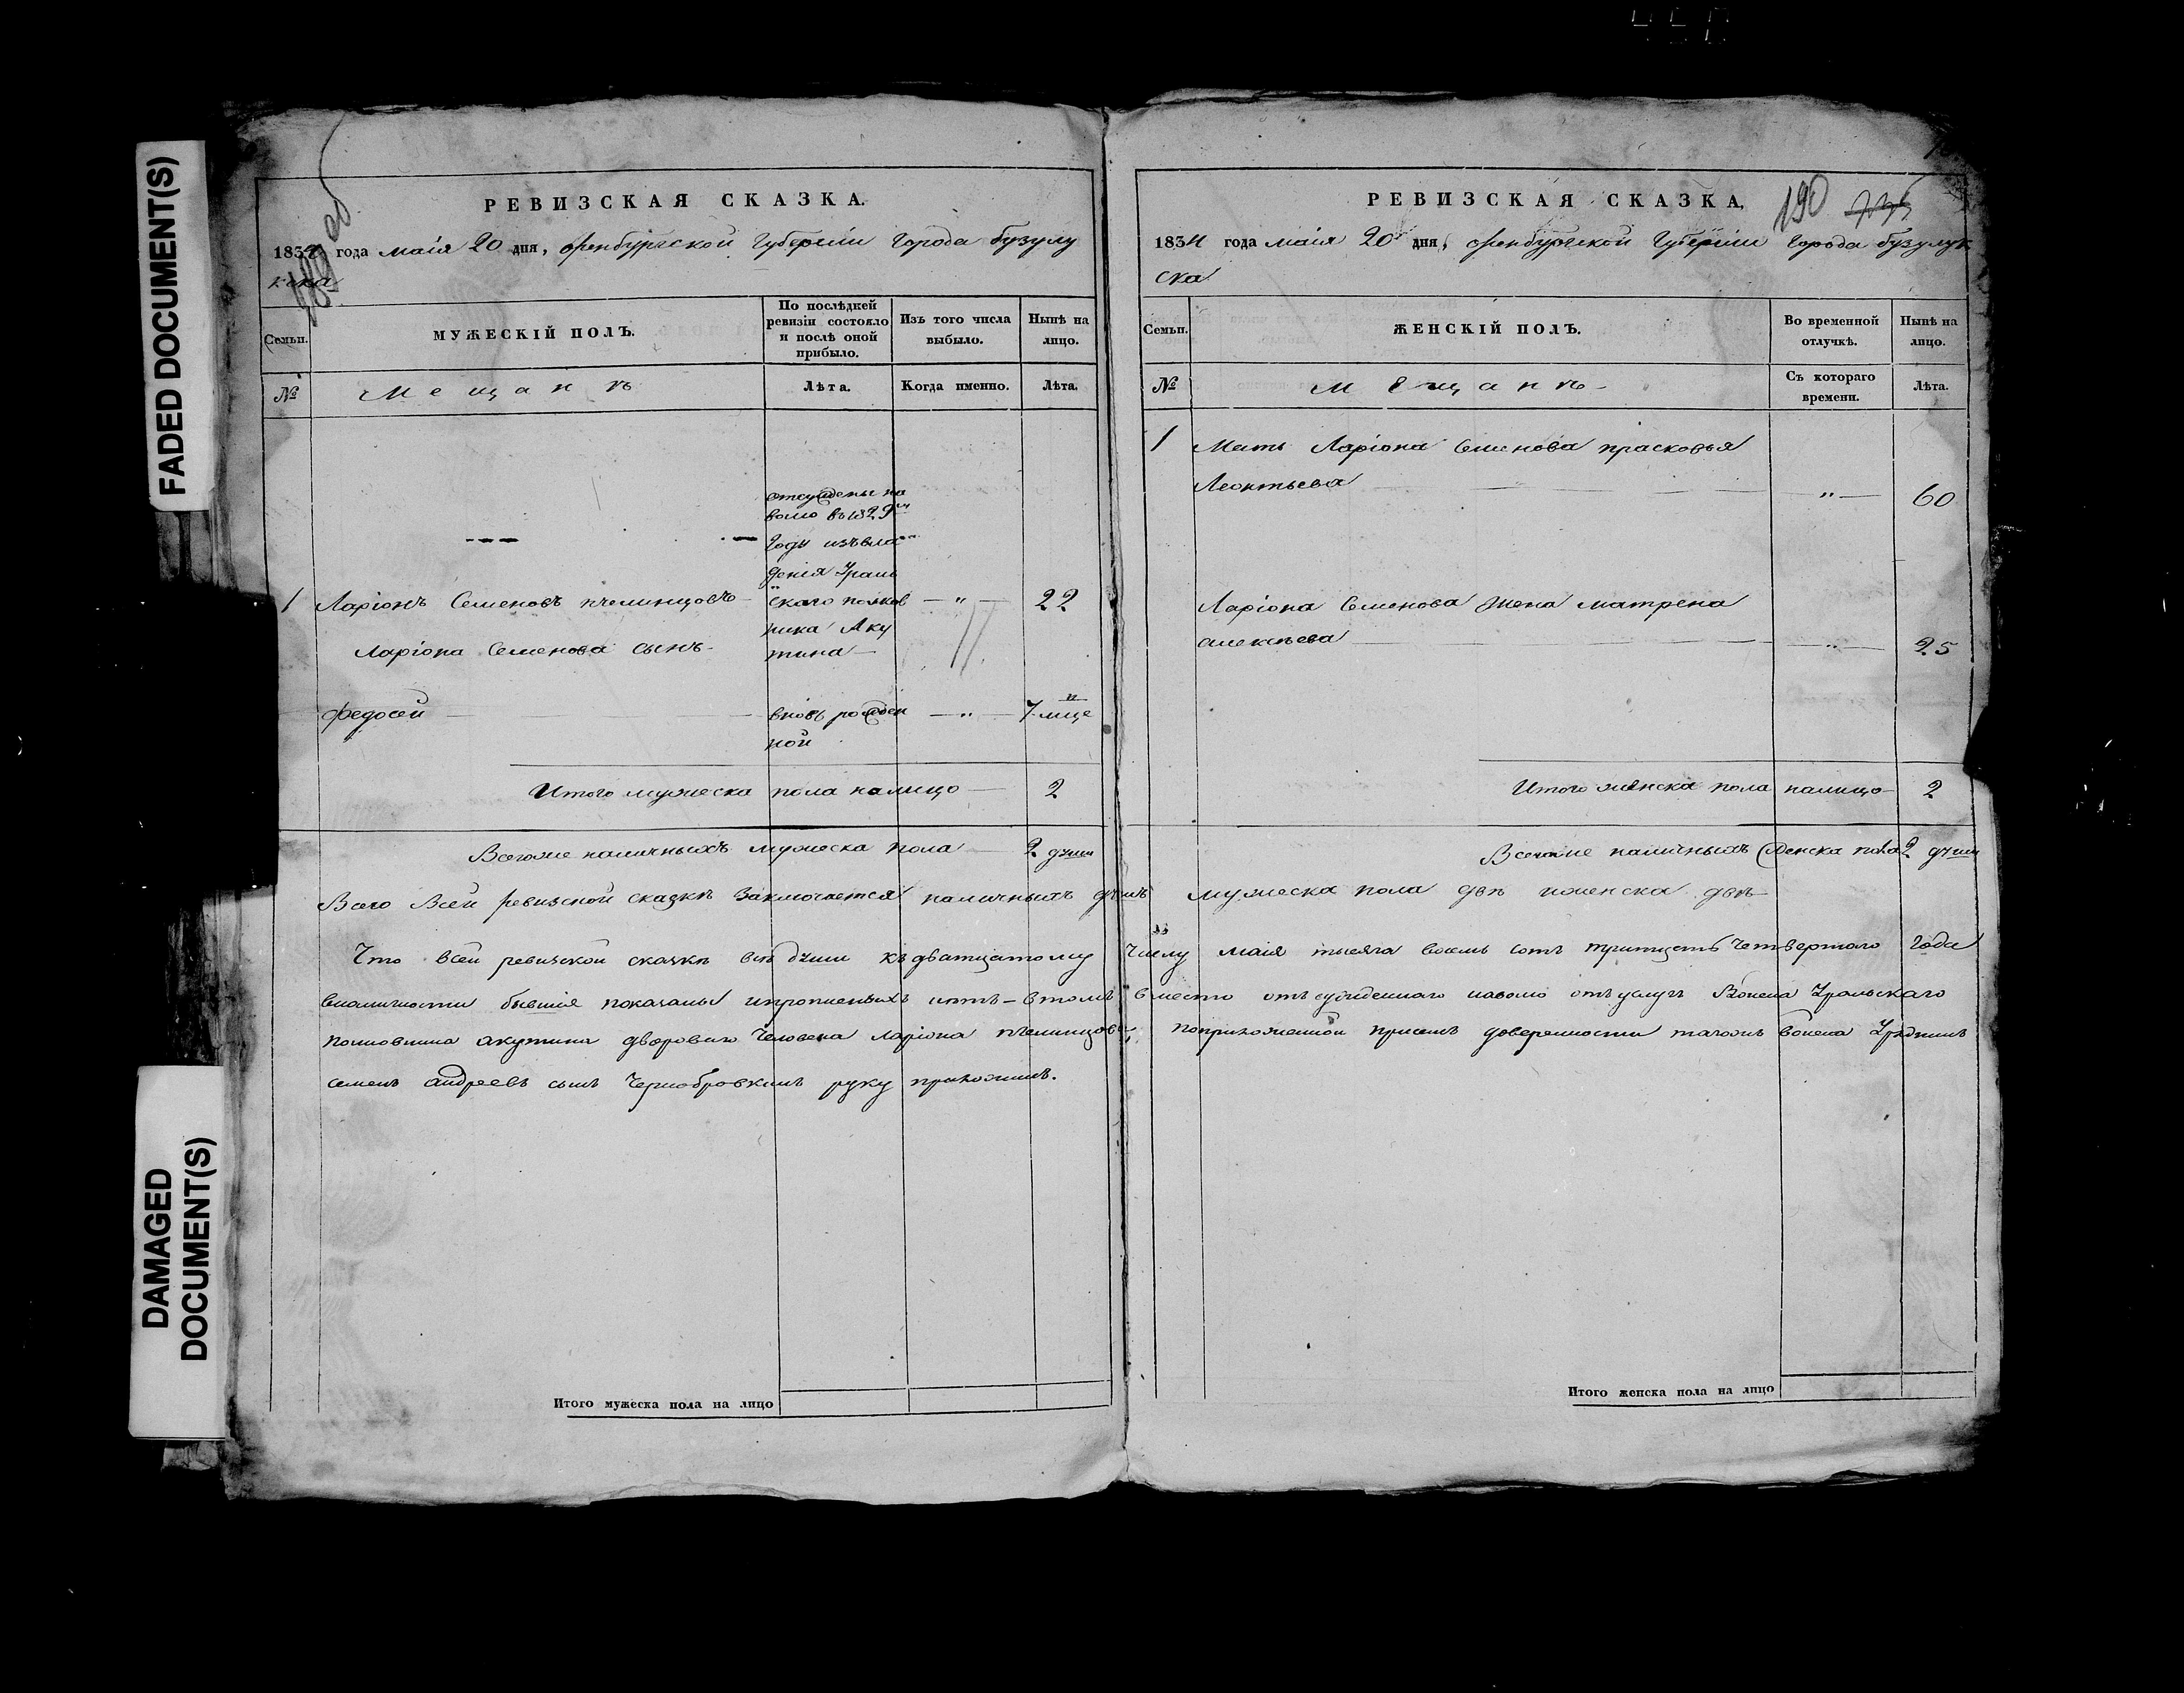 FADED DOCUMENT(S)
DAMAGED
DOCUMENT(S)
РЕВИЗСКАЯ СКАЗКА.
1834 года маія 20 дня, Оренбургской Губерніи города бузулу
кска
Семьи.
МУЖЕСКІЙ ПОЛЪ.
По послѣдней
ревизіи состояло
и послѣ оной
прибыло.
Изъ того числа
выбыло.
Нынѣ на
лицо.
№
Мещанъ
Лѣта.
Когда именно.
Лѣта.
отсуждены на
волю въ 1829м
Году изъвла
денія Ураль
скаго полков
ника Аку
тина
1 Ларіонъ Семеновъ пчелинцовъ — " — 22
Ларіона Семенова сынъ
федосей — вновь рожден — " — 7 мце
ной
Итого мужеска пола налицо — 2
Всегоже наличныхъ мужеска пола — 2 души
РЕВИЗСКАЯ СКАЗКА,
190
1834 года маія 20 дня, Оренбургской Губерніи города бузулук
ска
Семьи.
ЖЕНСКІЙ ПОЛЪ.
Во временной
отлучкѣ.
Нынѣ на
лицо.
№
Мещанъ
Съ котораго
времени.
Лѣта.
1 Мать Ларіона Семенова прасковья
Леонтьева — " — 60
Ларіона Семенова жена матрена
алексѣева — " — 25
Итого женска пола налицо — 2
Всегоже наличныхъ женска пола 2 души
Всего Всей ревизской сказкѣ Заключается наличныхъ душъ мужеска пола двѣ иженска двѣ
Что всей ревизской сказкѣ всѣ души къдватцатому числу маія тысяча восемь сотъ тритцеть четвертого Года
вналичности бывшіе показаны ипропиенныхъ нѣтъ — втомъ вместо отъсужденнаго наволю отъуслугъ Войска Уральскаго
полковника акутина двороваго человека ларіона пчелинцова, поприложенной присемъ доверенности тагожъ войска Урядникъ
семенъ андреевъ сынъ Чернобровкинъ руку приложилъ.
Итого мужеска пола на лицо
Итого женска пола на лицо